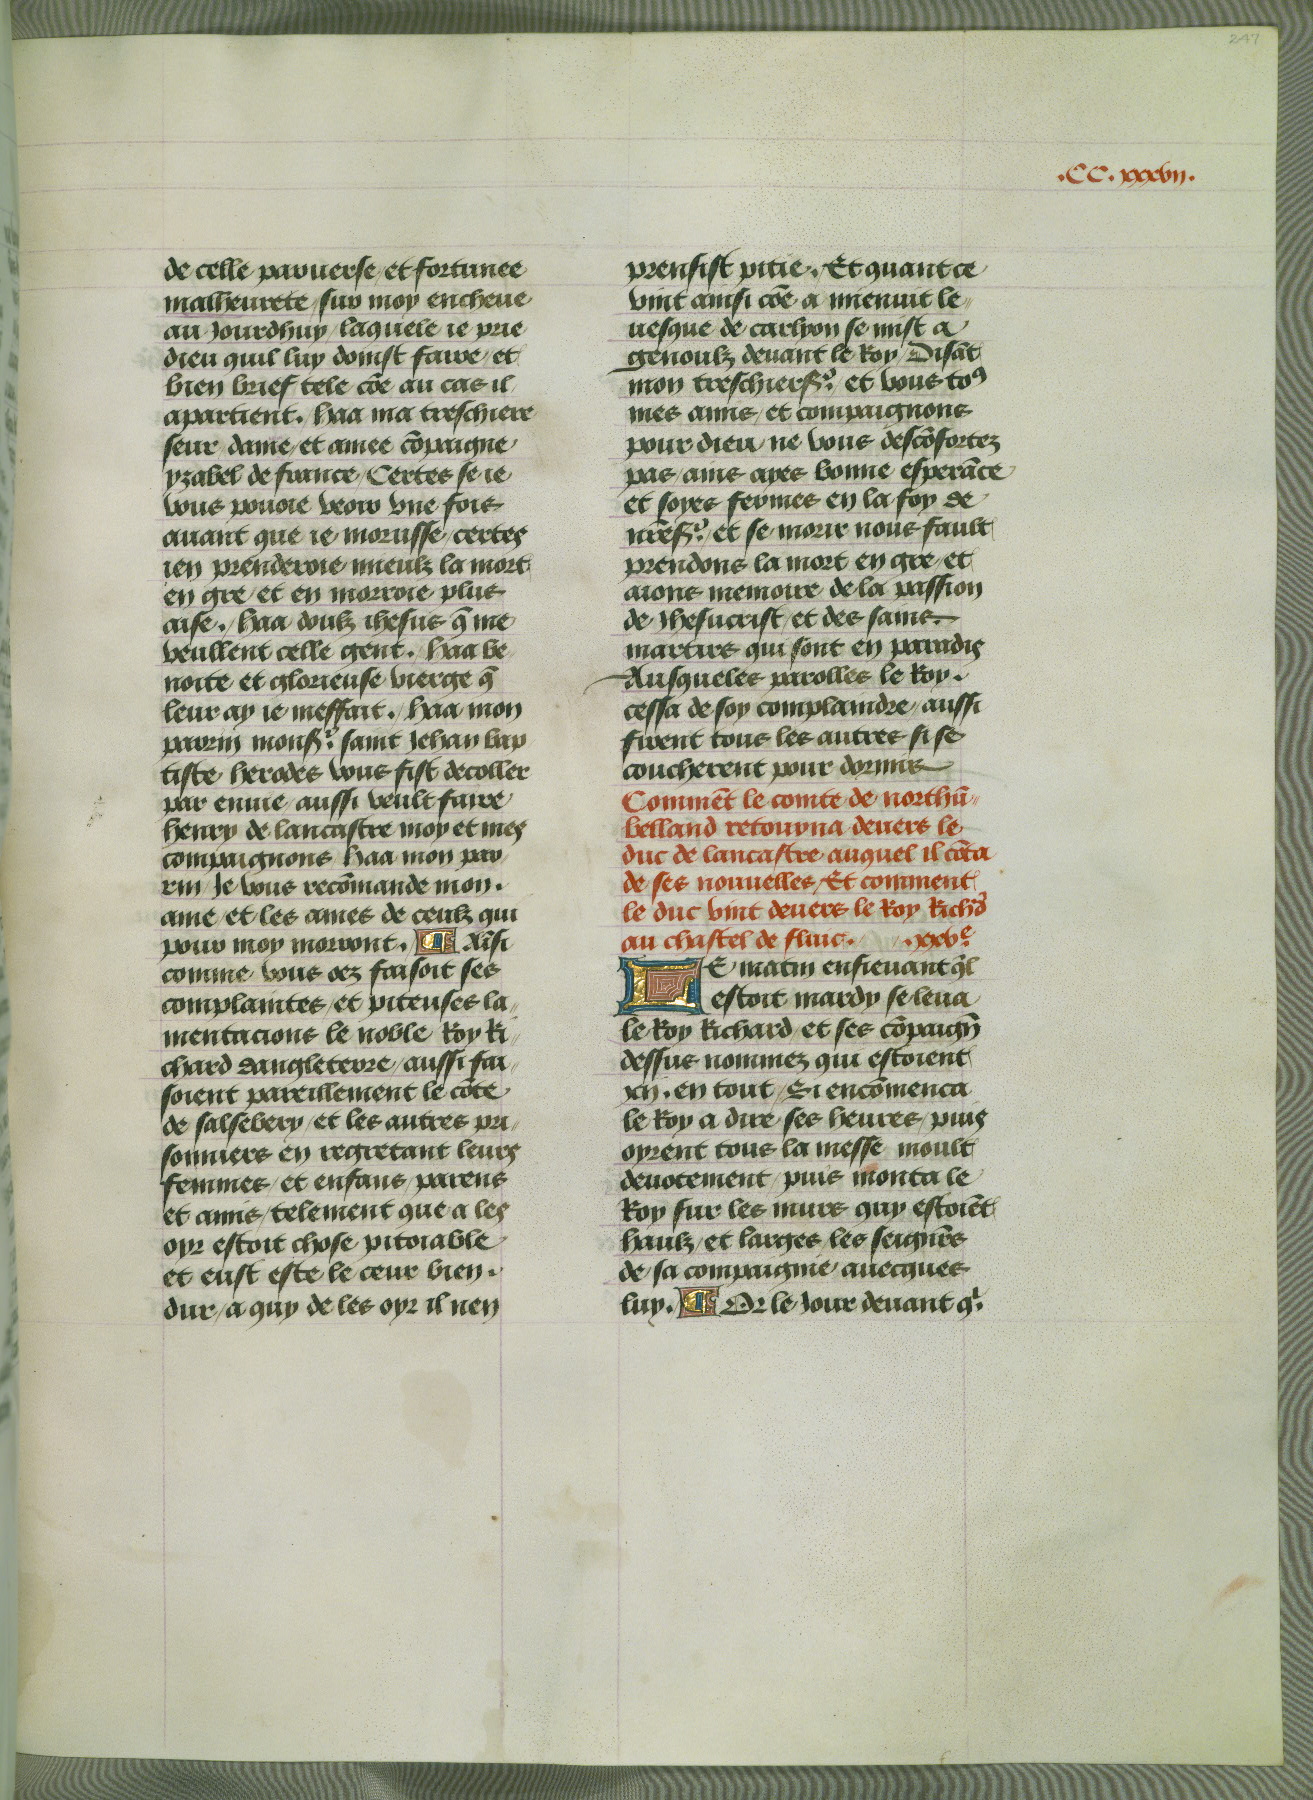 247
.CC. xxxvii.
de celle parverse et fortunee
malheurete sur moy encheue
au Jourdhuy laquele ie prie
dieu quil luy doinst faire et
bien brief tele cõe au cas il
apartient. haa ma treschiere
seur dame et amee cõpaigne
yzabel de france Certes se ie
vous pouoie veoir vne fois
auant que ie morusse certes
ien prenderoie mieulz la mort
en gre et en morroie plus
aise. haa doulz ihesus q̃ me
veullent celle gent. haa be
noite et glorieuse vierge q̃
leur ay ie meffait. haa mon
parrin monsr. saint Jehan bap
tiste herodes vous fist decoller
par enuie aussi veult faire
henry de lancastre moy et mes
compaignons haa mon par
rin Je vous recõmande mon.
ame et les ames de ceulz qui
pour moy morront. Aĩsi
comme vous oez faisoit ses
complaintes et piteuses la
mentacions le noble Roy Ri
chard dangleterre aussi fai
soient pareillement le cõte
de salsebery et les autres pri
sonniers en regretant leurs
femmes et enfans parens
et amis telement que a les
oyr estoit chose pitoiable
et eust este le ceur bien.
dur a quy de les oyr il nen
prensist pitie. Et quant ce
vint ainsi cõe a mienuit le
uesque de carlyon se mist a
genoulz deuant le Roy Disãt
mon treschiersr. et vous to9
mes amis et compaignons
pour dieu ne vous descõfortez
pas ains ayes bonne esperãce
et soyes fermes en la foy de
nr̃esr. et se morir nous fault
prendons la mort en gre et
aions memoire de la passion
de Jhesucrist et des sains
martirs qui sont en paradis
Ausqueles parolles le Roy.
cessa de soy complaindre aussi
firent tous les autres si se
coucherent pour dormir
Commẽt le comte de northũ
belland retourna deuers le
duc de lancastre auquel il cõta
de ses nouuelles Et comment
le duc vint deuers le Roy Richd
au chastel de flinc. .xxve
LE matin ensieuant q̃l
estoit mardy se leua
le Roy Richard et ses cõpaigñ
dessus nommez qui estoient
xii. en tout Si encõmenca
le Roy a dire ses heures puis
oyrent tous la messe moult
deuotement puis monta le
Roy sur les murs quy estoiẽt
haulz et larges les seignr̃s
de sa compaignie auecques
luy. Or le Jour deuant q̃.